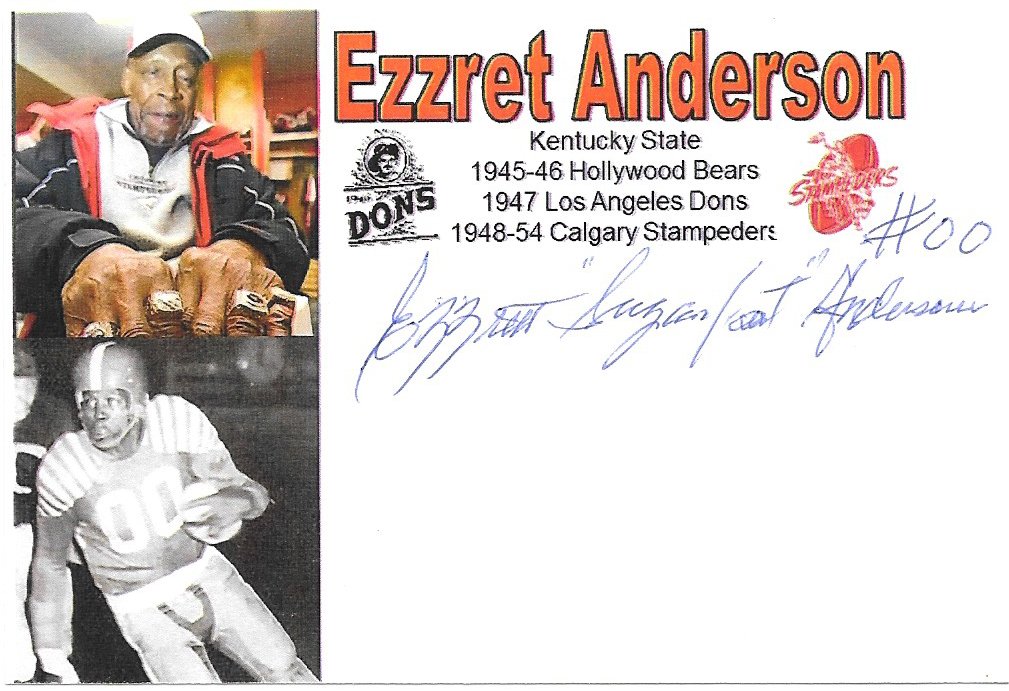 Ezzret Anderson
Kentucky State
1945-46 Hollywood Bears
1947 Los Angeles Dons
1948-54 Calgary Stampeders
DONS
STAMPEDERS
#00
Ezzrett "Sugarfoot" Anderson
00